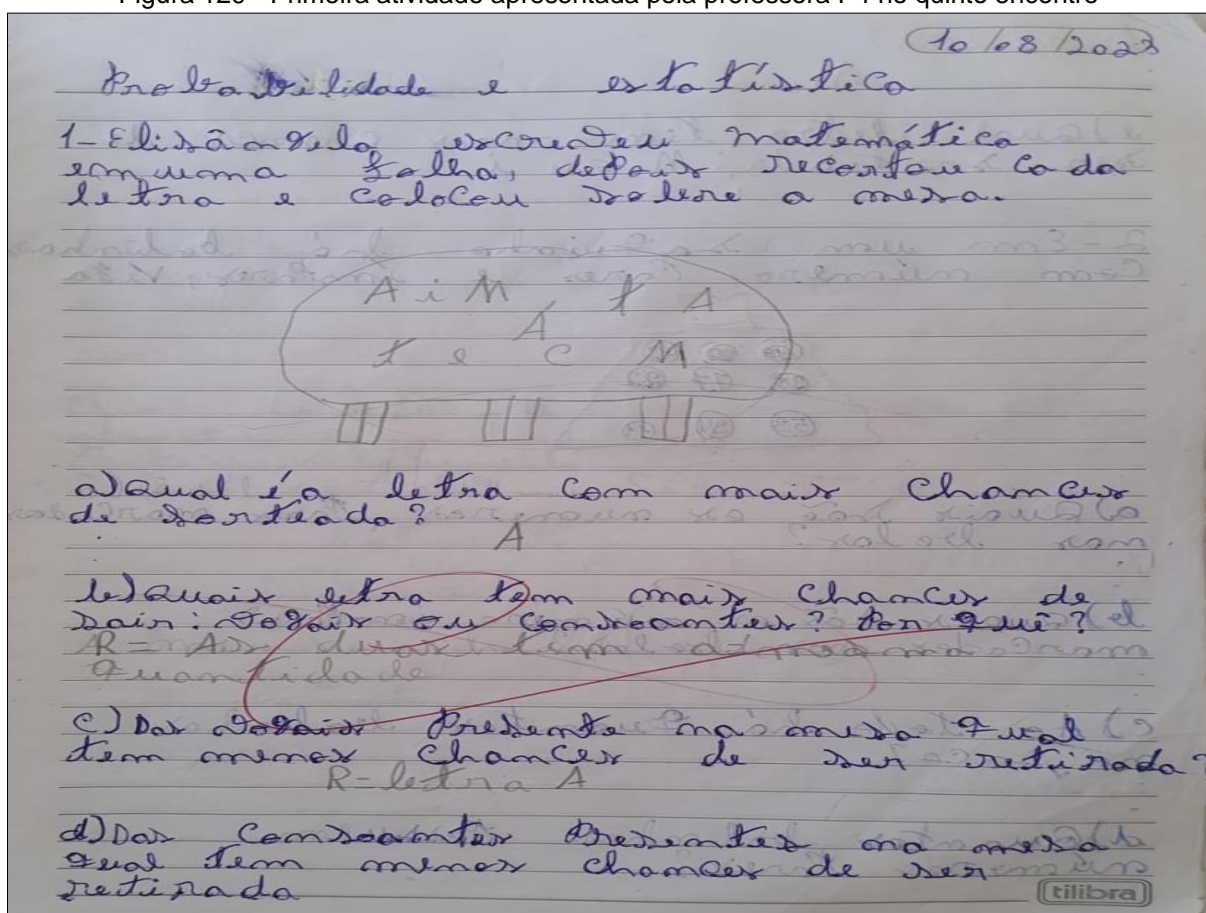 Figura 126 - Primeira atividade apresentada pela professora P4 no quinto encontro
10/08/2023
Probabilidade e estatística
1-Elisângela escreveu matemática
em uma folha, depois recortou cada
letra e colocou sobre a mesa.
A i M t A
Á
t e C M
a) Qual é a letra com mais chances
de sorteada?
A
b) Quais letra tem mais chances de
sair: vogais ou consoantes? Por quê?
R= As duas tem a mesma
quantidade
c) Das vogais presente na mesa qual
tem menos chances de ser retirada?
R= letra A
d) Das consoantes presentes na mesa
qual tem menos chances de ser
retirada
tilibra